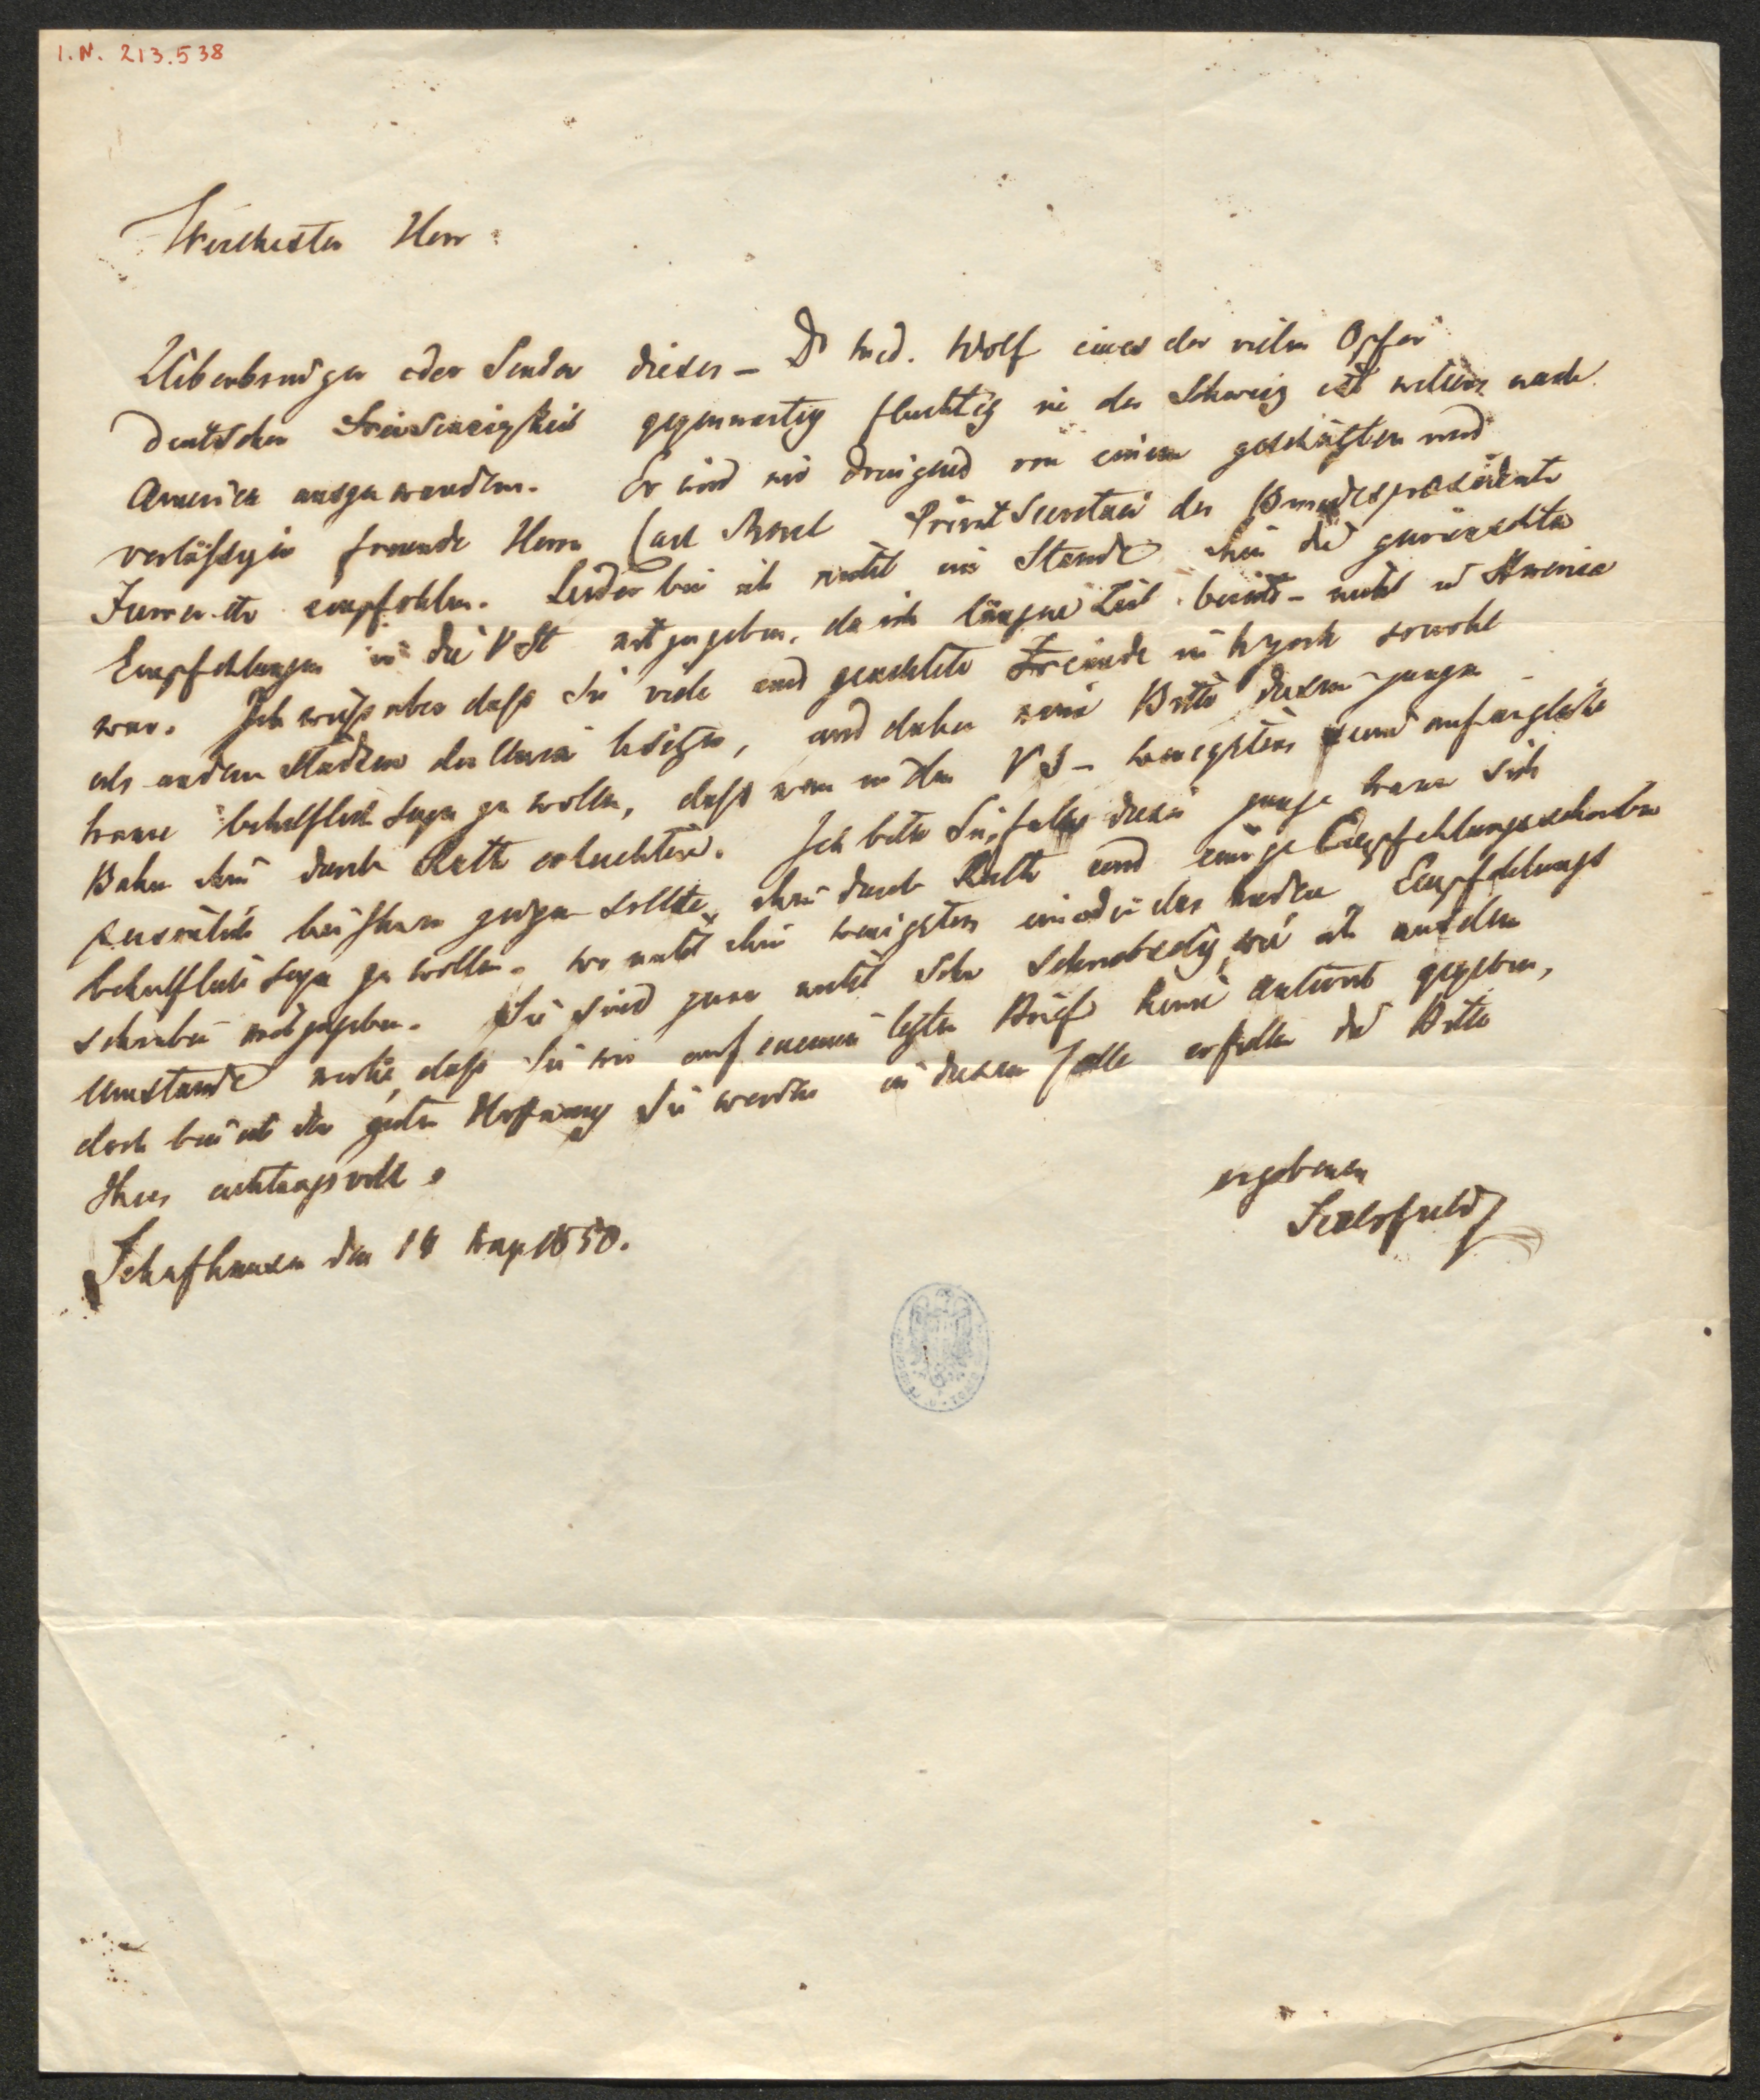 I.N. 213.538
Werthester Herr
Überbringer oder Sender dieses – Dr med. Wolf eines der vielen Opfer
deutscher Freisinnigkeit gegenwartig fluchtig in der Schweiz ist willens nach
America auszuwandern. Er wird mir dringend von einem geschäzten und
verläßigen Freunde Herrn Carl Privat Secretair des Bundespräsidenten
Furrer etc empfohlen. Leider bin ich nicht im Stande ihm die gewünschten
Empfehlungen in die V St mitzugeben, da ich längere Zeit bereits – nicht in America
war. Ich weiß aber daß Sie viele und geachtete Freunde in NYork sowohl
als andern Städten der Union besitzen, und daher meine Bitte diesem jungen
Manne behulflich seyn zu wollen, daß man in den V S – wenigstens seine anfangliche
Bahn ihm durch Rath erleuchtere. Ich bitte Sie, falls dieser junge Mann sich
persönlich bei Ihnen zeigen sollte, ihm durch Rath und einige Empfehlungsschreiben
behulflich seyn zu wollen. wo nicht ihm wenigstens ein oder das andere Empfehlungs
schreiben mitzugeben. Sie sind zwar nicht sehr schreibselig, wie ich aus dem
Umstande merke, daß Sie mir auf meinen lezten Brief keine Antwort gegeben,
doch bin ich der guten Hoffnung Sie werden in diesem Falle erfüllen die Bitte
Ihres achtungsvoll
ergebenen
Sealsfield
Schafhausen den 14 May 1850.